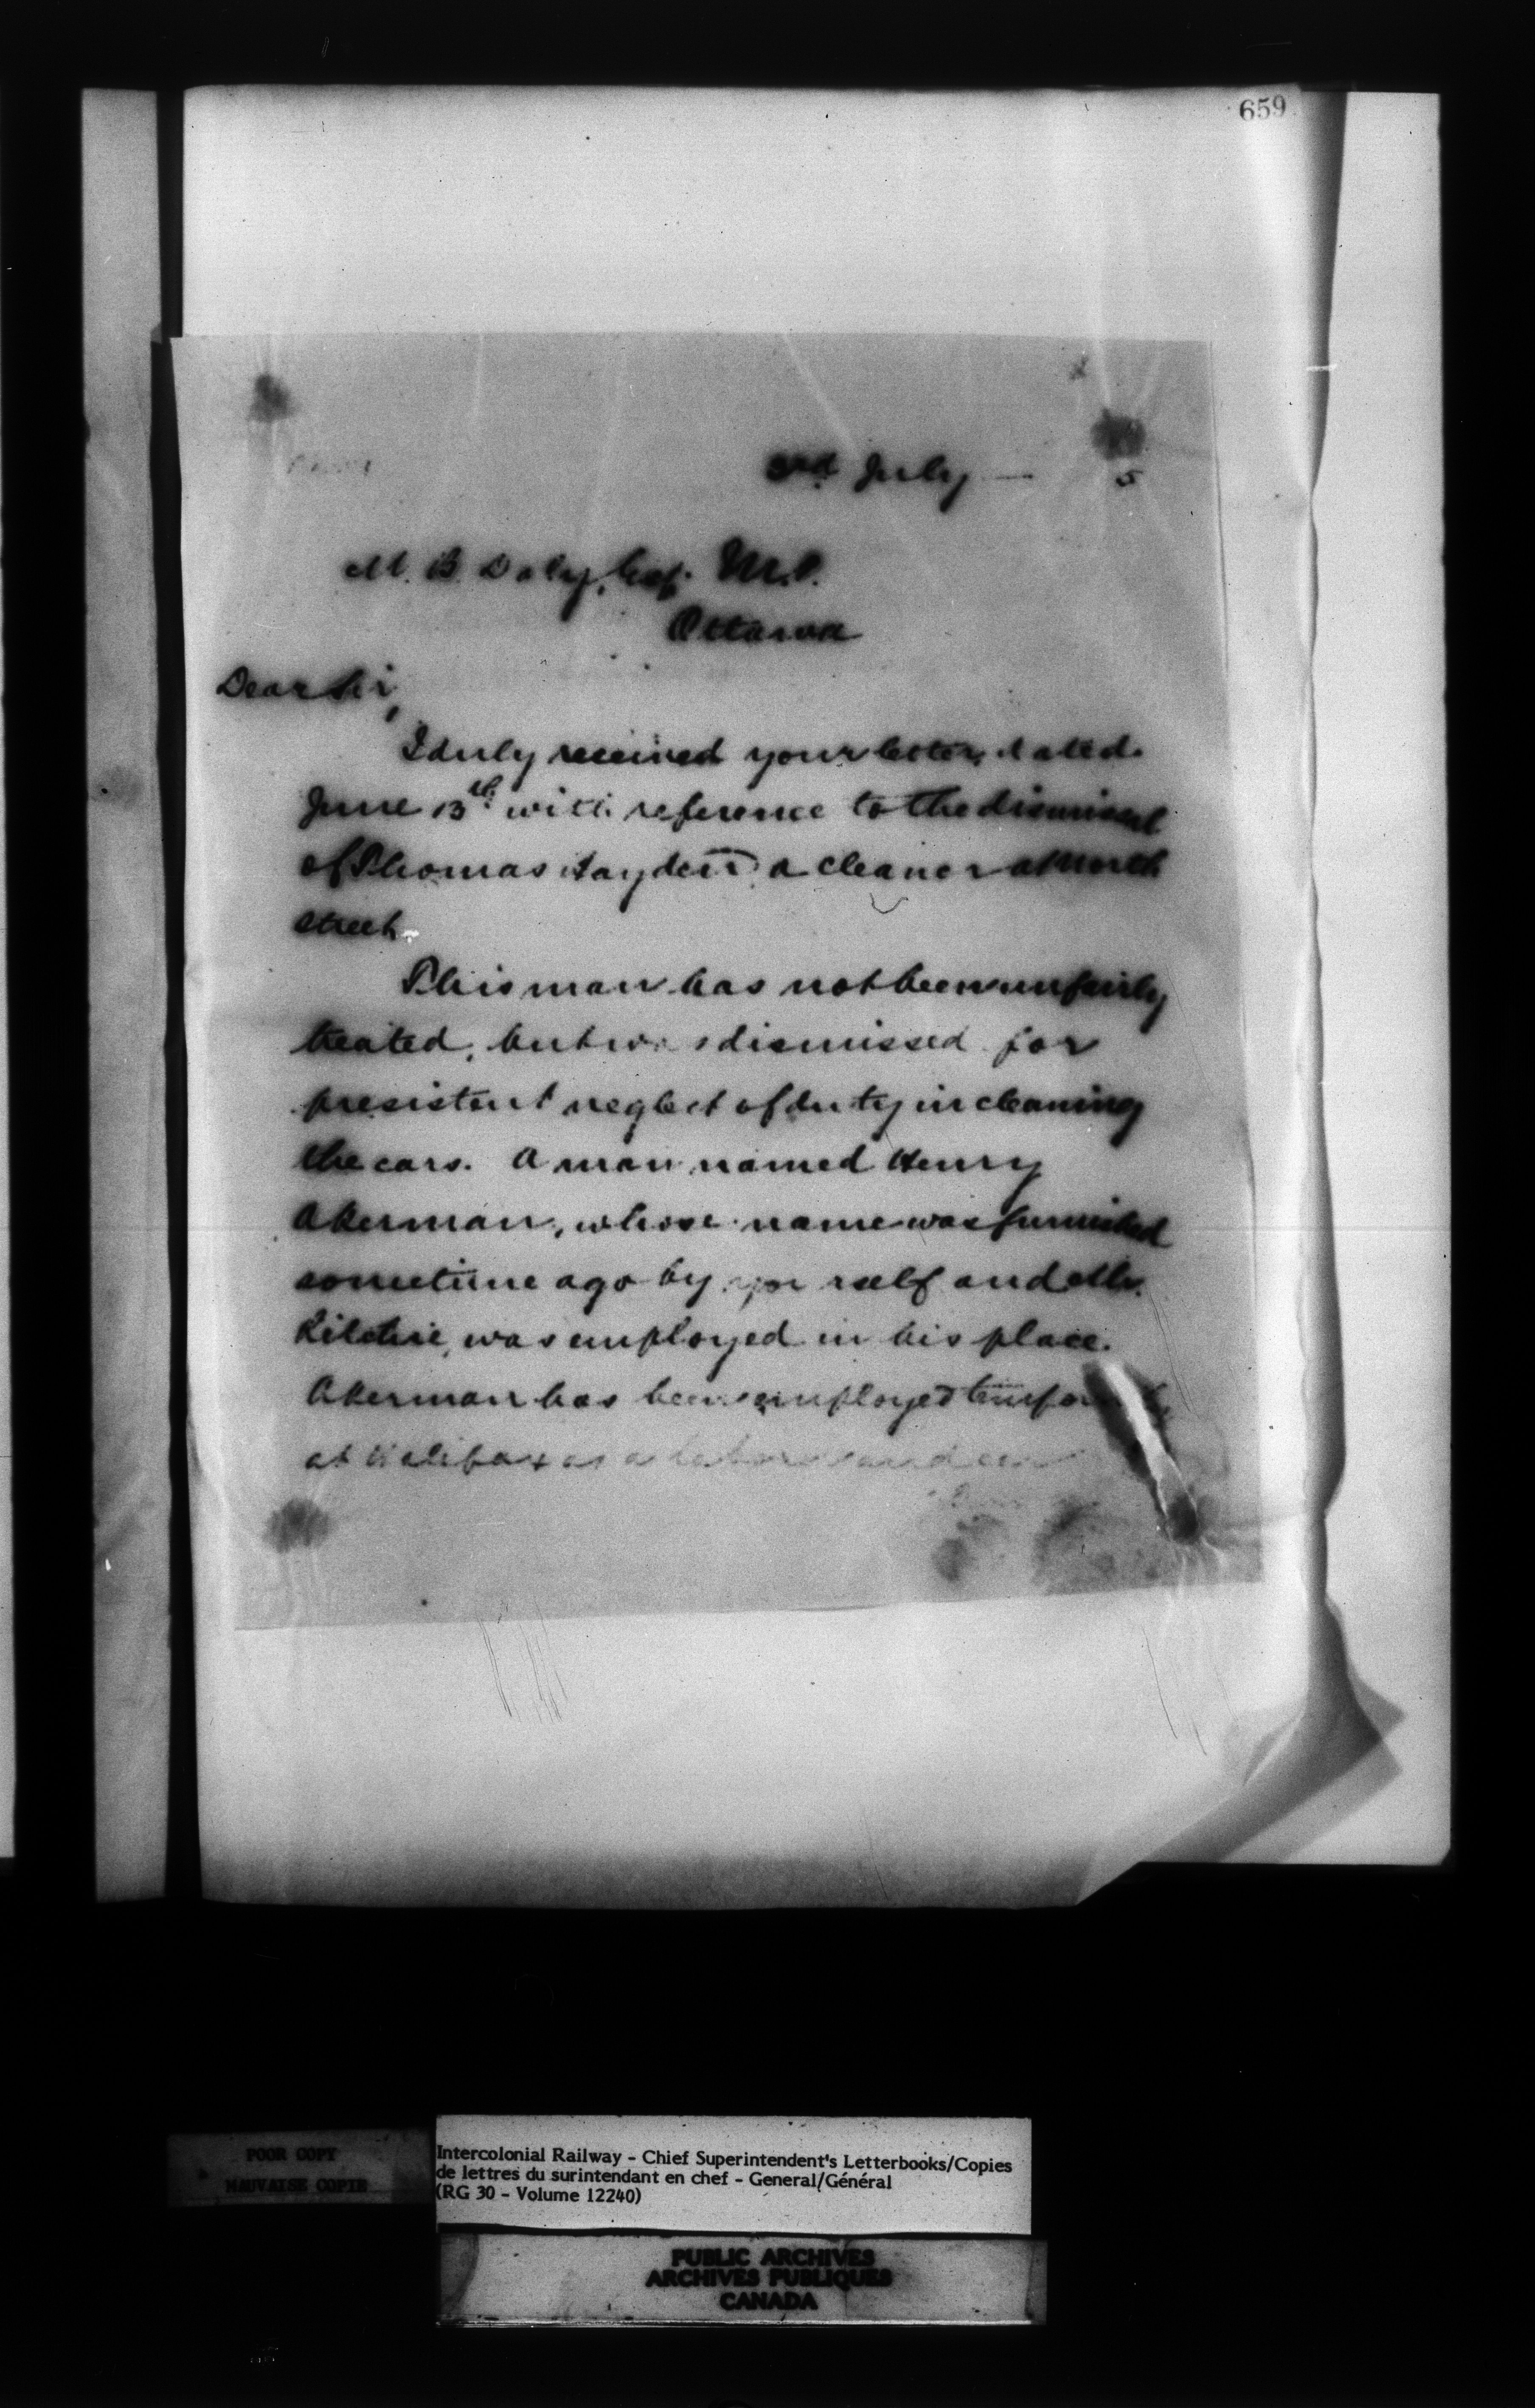 659
3rd July — 5
M. B. Daly, Esq. M.P.
Ottawa
Dear Sir,
I duly received your letter, dated
June 13th. with reference to the dismissal
of Thomas Hayden, a cleaner at North
Street.
This man has not been unfairly
treated, but was dismissed for
presistent neglect of duty in cleaning
the cars. A man named Henry
Akerman, whose name was furnished
sometime ago by yourself and Mr.
Ritchie, was employed in his place.
Akerman has been employed
at Halifax as a laborer and
POOR COPY
MAUVAISE COPIE
Intercolonial Railway - Chief Superintendent's Letterbooks/Copies
de lettres du surintendant en chef - General/Général
(RG 30 - Volume 12240)
PUBLIC ARCHIVES
ARCHIVES PUBLIQUES
CANADA